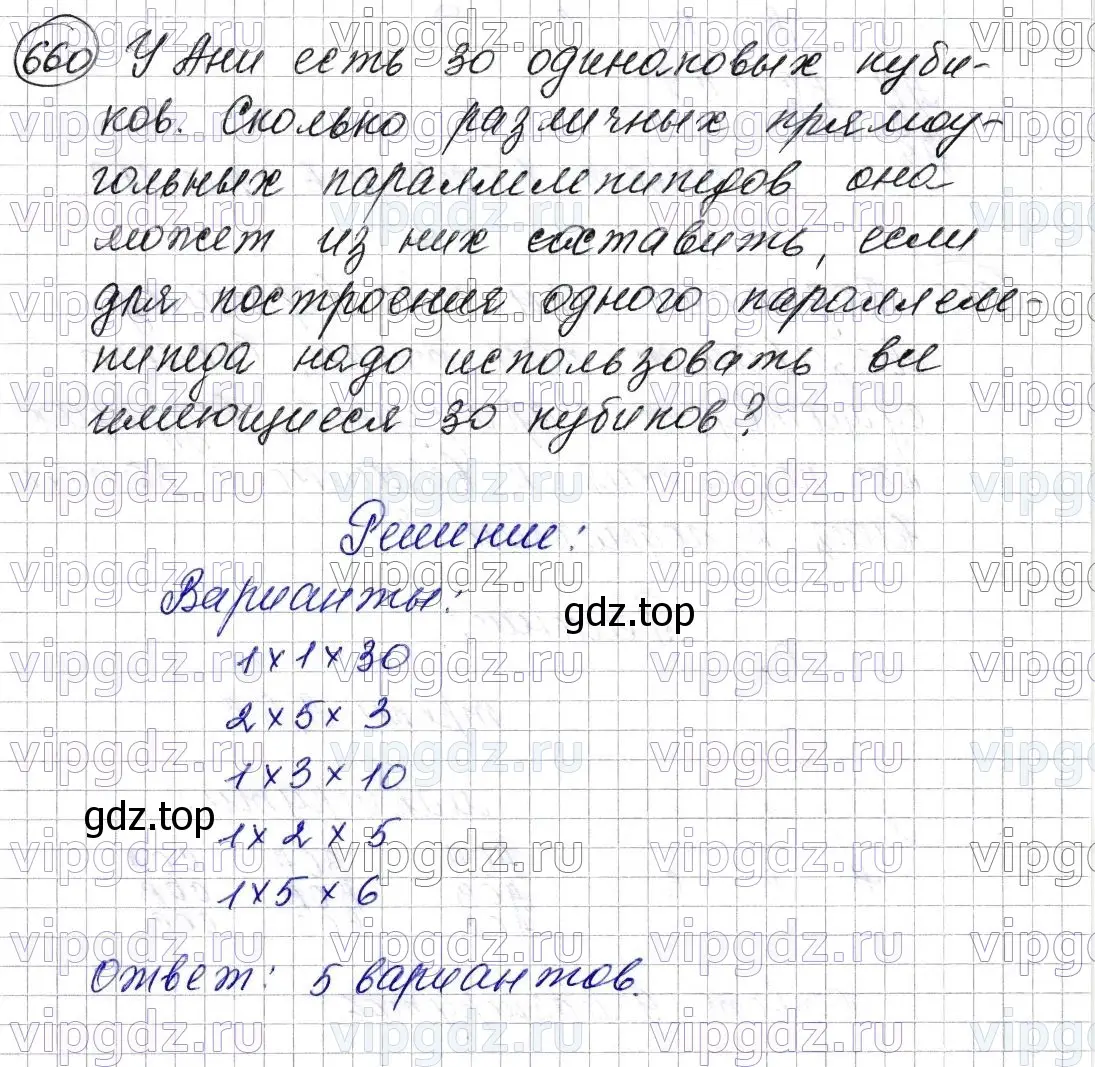 660 У Ани есть 30 одинаковых куби-
ков. Сколько различных прямоу-
гольных параллелепипедов она
может из них составить, если
для построения одного параллеле-
пипеда надо использовать все
имеющиеся 30 кубиков?
Решение:
Варианты:
gdz.top
1 x 1 x 30
2 x 5 x 3
1 x 3 x 10
gdz.top
1 x 2 x 5
1 x 5 x 6
Ответ: 5 вариантов.
vipgdz.ru